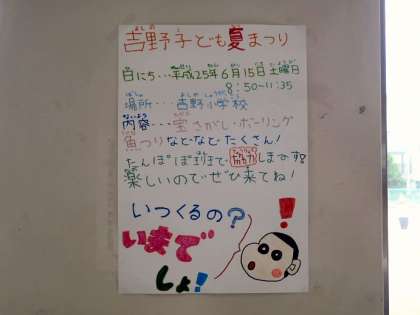 吉野子ども夏まつり
日にち・・・平成25年6月15日土曜日
8:50~11:35
場所・・・吉野小学校
内容・・・宝さがし・ボーリング
魚つりなどなどたくさん!
協力しまです
楽しいのでぜひ来てね!
いつくるの?
いまで
しょ!
!